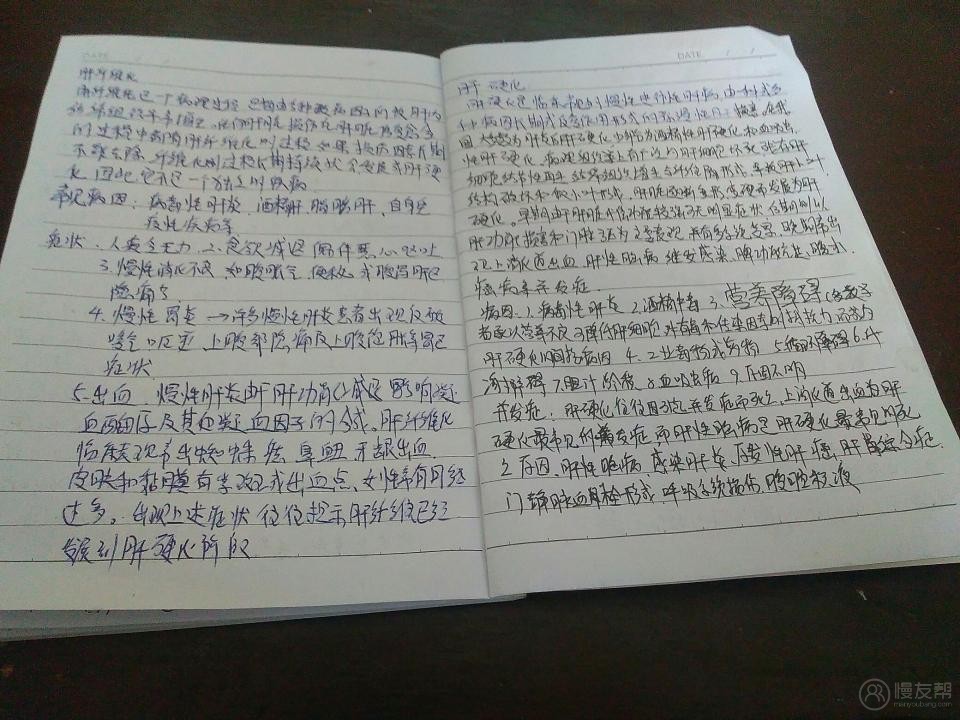 DATE
肝纤维化
肝纤维化是一个病理过程
的过程中都有肝纤维化的过程 如果损伤因素长期
不能去除,纤维化的过程长期持续就会发展成肝硬
化 因此它不是一个独立的疾病
常见病因:病毒性肝炎,酒精肝,脂肪肝,自身免
疫性疾病等
症状. 疲乏无力. 2.食欲减退
3.慢性消化不良 如腹胀气 便秘 或肝区
隐痛等
4.慢性胃炎 → 许多慢性肝炎患者出现反酸
嗳气 呃逆 上腹部隐痛及上腹饱胀等胃区
症状
5.出血 慢性肝炎由于肝功能减退影响凝
血酶原及其他凝血因子的合成. 肝纤维化
临床表现常出现蜘蛛痣 鼻衄 牙龈出血
皮肤和黏膜有紫斑或出血点,女性常有月经
过多。出现上述症状往往提示肝纤维已经
发展到肝硬化阶段
DATE / /
肝硬化
肝硬化是临床常见的慢性进行性肝病,由一种或多
种病因长期或反复作用形成的弥漫性肝损害.在我
国大多数为肝炎后肝硬化,少部分为酒精性肝硬化和血吸虫
性肝硬化.病理组织学上有广泛的肝细胞坏死,残存肝
细胞结节性再生 结缔组织增生与纤维隔形成,导致肝小叶
结构破坏和假小叶形成,肝脏逐渐变形,变硬而发展为肝
硬化。早期由于肝脏代偿功能较强可无明显症状 后期则以
肝功能损害和门脉高压为主要表现 并有多系统受累,晚期常出
现上消化道出血 肝性脑病 继发感染,脾功能亢进,腹水,
癌变等并发症.
病因. 1.病毒性肝炎 2.酒精中毒 3.营养障碍(多数学
者承认营养不良可降低肝细胞对有毒和传染因素的抵抗力 而成为
肝硬化的间接病因 4.工业毒物或药物 5.循环障碍 6.代
谢障碍 7.胆汁淤积 8.血吸虫病 9.原因不明
并发症. 肝硬化往往因引起并发症而死亡,上消化道出血为肝
硬化最常见的并发症 而肝性脑病是肝硬化最常见的死
亡原因. 肝性脑病 感染肝炎,原发性肝癌,肝肾综合症.
门静脉血栓形成 呼吸系统损伤.腹腔积液
慢友帮
manyoubang.com